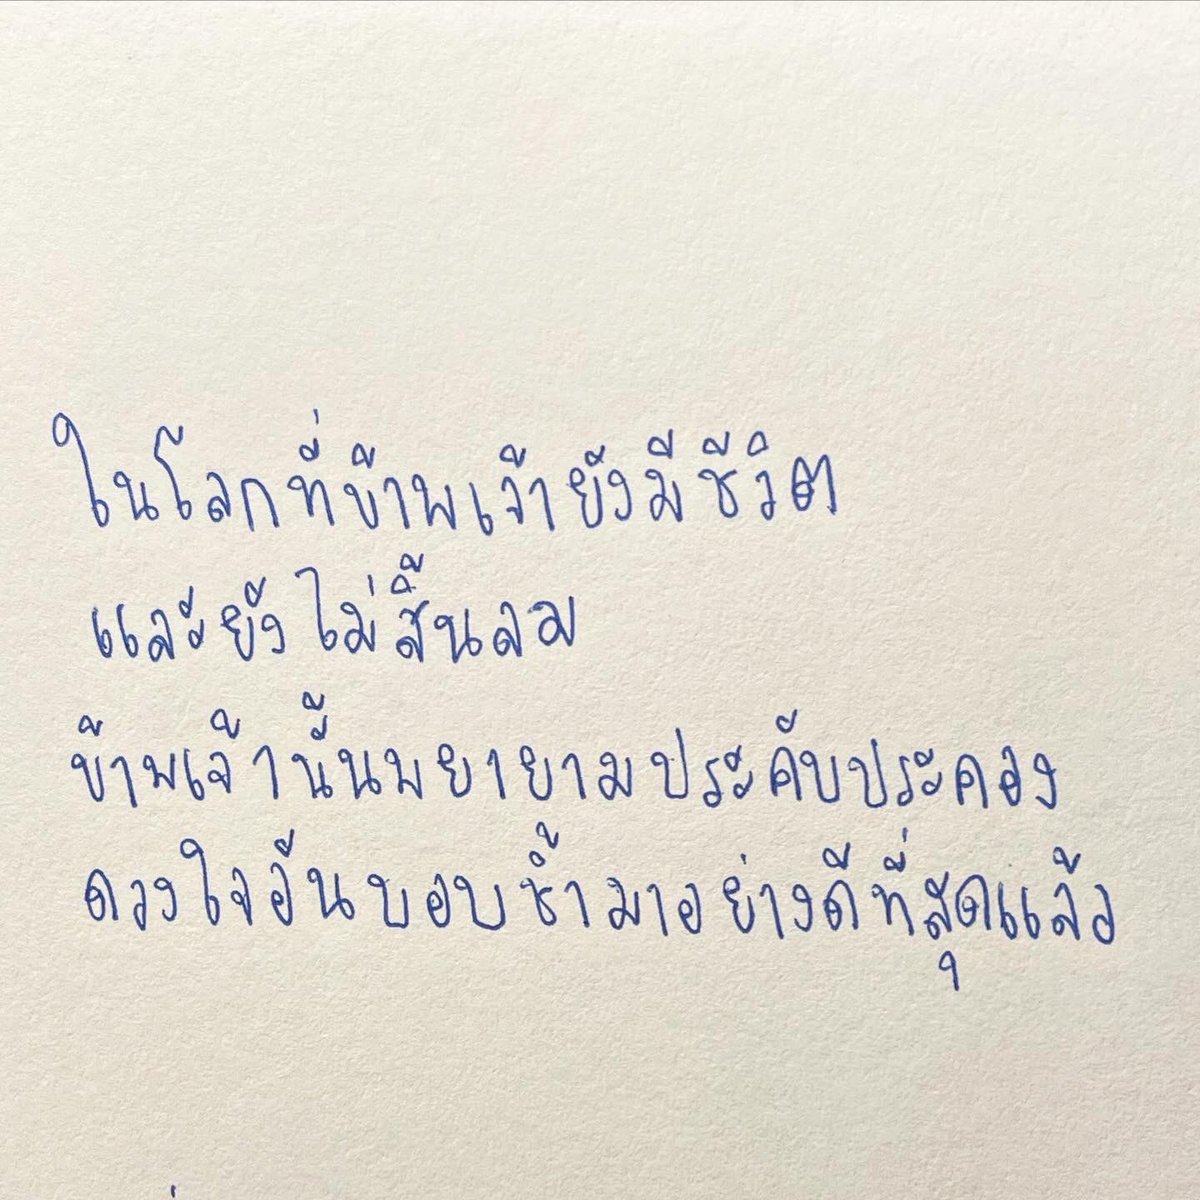 ในโลกที่ข้าพเจ้ายังมีชีวิต
และยังไม่สิ้นลม
ข้าพเจ้านั้นพยายามประคับประคอง
ดวงใจอันบอบช้ำมาอย่างดีที่สุดแล้ว